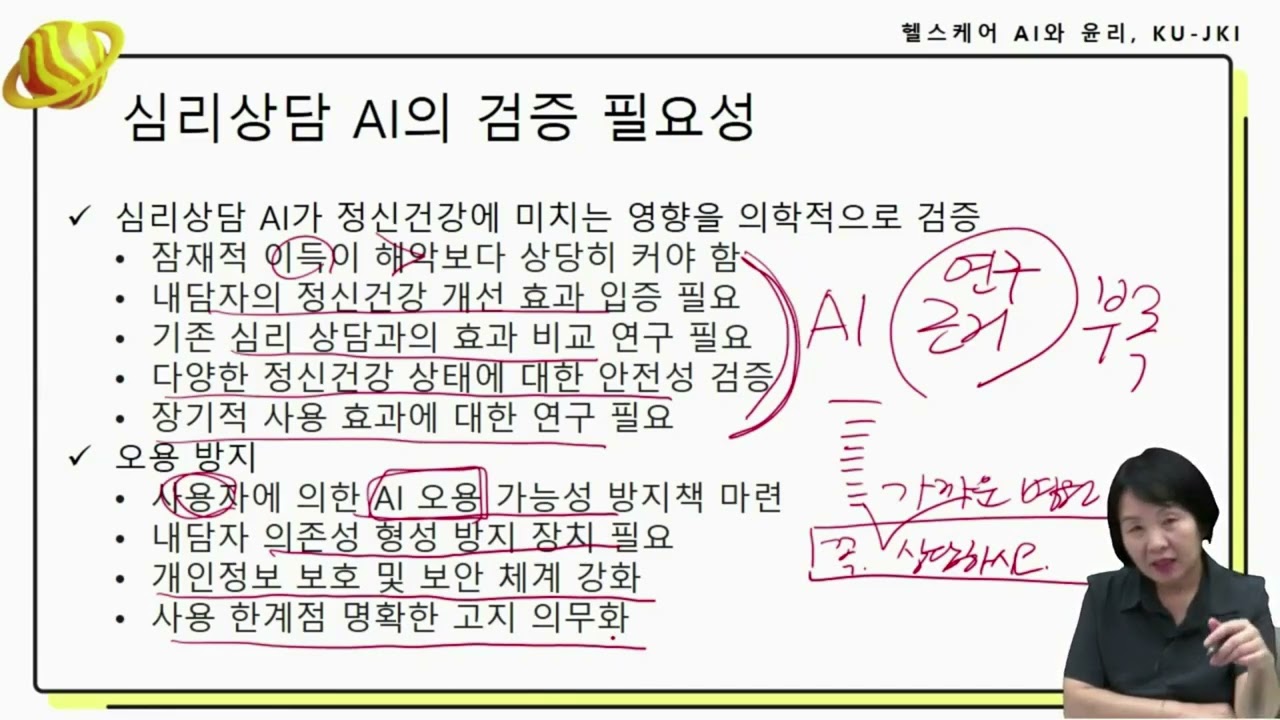 헬스케어 AI와 윤리, KU-JKI
심리상담 AI의 검증 필요성
✓ 심리상담 AI가 정신건강에 미치는 영향을 의학적으로 검증
• 잠재적 이득이 해악보다 상당히 커야 함
• 내담자의 정신건강 개선 효과 입증 필요
• 기존 심리 상담과의 효과 비교 연구 필요
• 다양한 정신건강 상태에 대한 안전성 검증
• 장기적 사용 효과에 대한 연구 필요
✓ 오용 방지
• 사용자에 의한 AI 오용 가능성 방지책 마련
• 내담자 의존성 형성 방지 장치 필요
• 개인정보 보호 및 보안 체계 강화
• 사용 한계점 명확한 고지 의무화
AI 연구 근거 부족
가까운 병원
꼭 상담하시오.